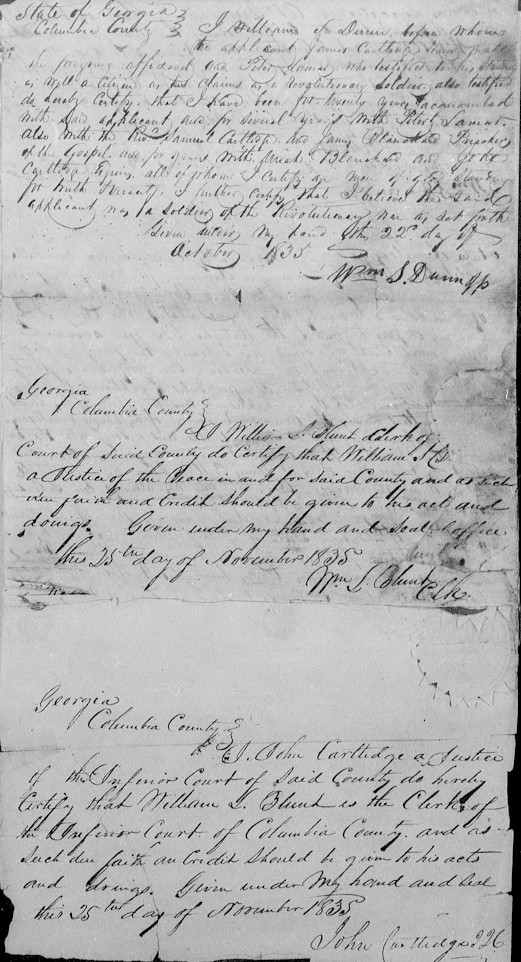 State of Georgia
Columbia County I William S. Dunn, before whom
the applicant James Carltrop have made
the forgoing affidavit and Peter Lamar, who testified to his
as well a Citizen as his claims as a revolutionary Soldier, also testified
do hereby Certify, that I have been for twenty years acquainted
with Said applicant and for several years with Peter Lamar
also with the Revd Samuel Carltrop and James Blanchard Preachers
of the Gospel and for years with Blanchard and John
all of whom I Certify are men of
for truth & veracity. I further Certify that I believe the Said
applicant was a Soldier of the Revolutionary war as set forth
Given under my hand the 22d day of
October 1835
Wm S. Dunn JP
Georgia
Columbia County
I William L. Blunt Clerk of
Court of Said County do Certify that William
a Justice of the Peace in and for Said County and as such
due faith and Credit Should be given to his acts and
doings. Given under my hand and Seal office
this 25th day of November 1835
Wm L. Blunt Clk.
Georgia
Columbia County
I, John Cartledge a Justice
of the Inferior Court of Said County do hereby
Certify that William L. Blunt is the Clerk of
the Inferior Court of Columbia County and as
Such due faith an Credit Should be given to his acts
and doings. Given under my hand and Seal
this 25th day of November 1835
John Cartledge